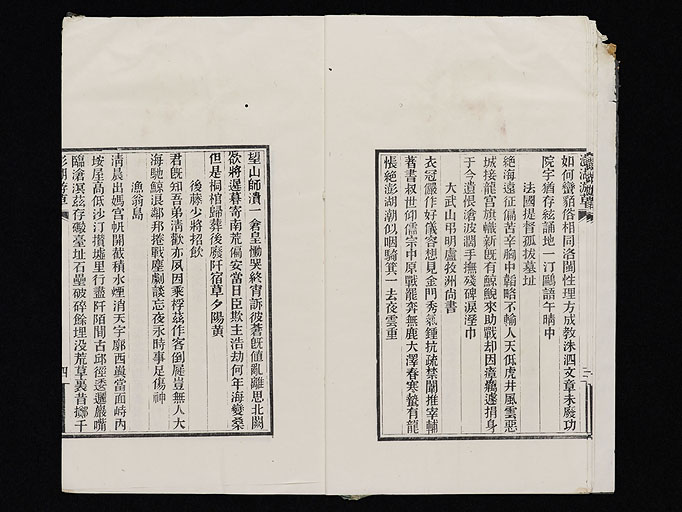 澎湖游草
如何蠻貊俗相同洛閩性理方成教洙泗文章未廢功
院宇猶存絃誦地一汀鷗語午晴中
法國提督孤拔墓址
絕海遠征偏苦辛胸中韜略不輸人天低虎井風雲惡
城接龍宮旗幟新既有鯨鯢來助戰却因瘴癘遽捐身
于今遺恨滄波濶手撫殘碑淚溼巾
大武山弔明盧牧洲尚書
衣冠儼作好儀容想見金門秀氣鍾抗疏禁闈推宰輔
著書叔世仰儒宗中原戰罷奔無鹿大澤春寒蟄有龍
悵絕澎湖潮似咽騎箕一去夜雲重
三
望山師潰一倉皇慟哭終宵訴彼蒼既値亂離思北闕
欲將遲暮寄南荒偏安當日臣欺主浩劫何年海變桑
但是桐棺歸葬後廢阡宿草夕陽黃
後藤少將招飲
君既知吾弟清歡亦夙因乘桴茲作客倒屣豈無人大
海馳鯨浪鄰邦捲戰塵劇談忘夜永時事足傷神
漁翁島
清晨出媽宮帆開截積水煙消天宇廓西嶼當面峙內
垵屋高低沙汀攢墟里行盡阡陌間古邱徑逶邐嚴嘴
臨滄溟茲存礮臺址石壘破碎餘埋没荒草裏昔擲千
澎湖游草
四